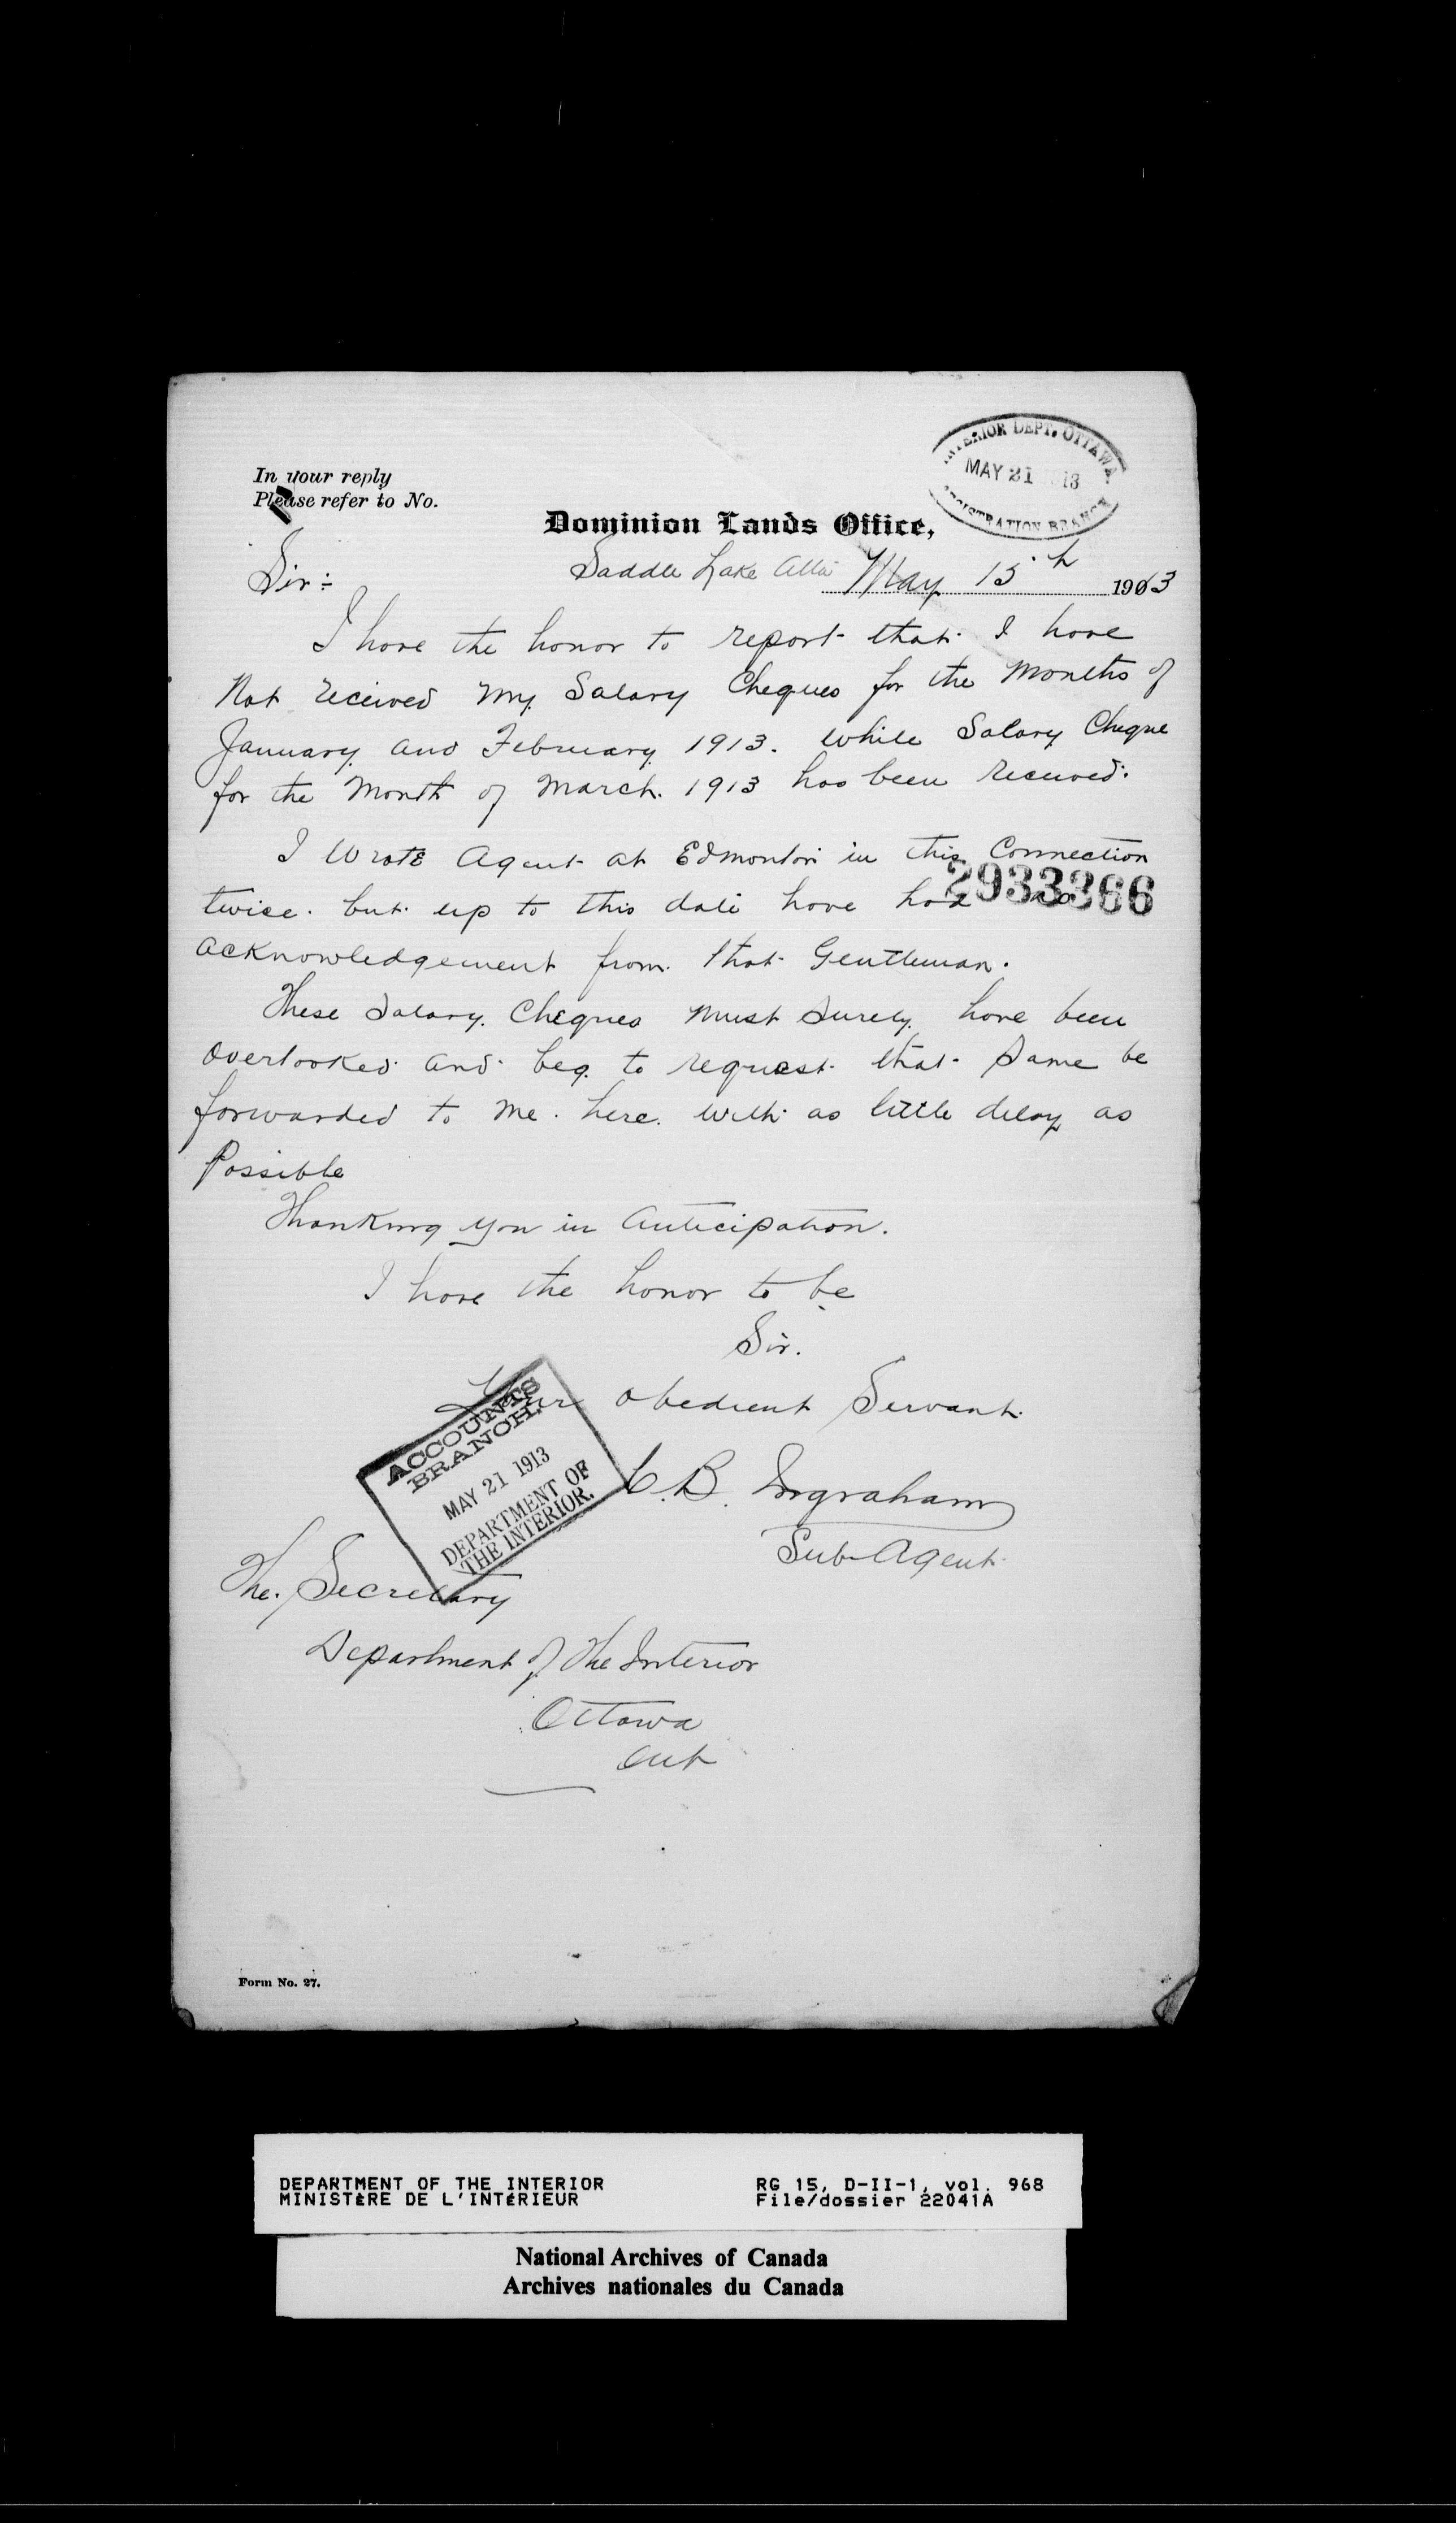 In your reply
Please refer to No.
INTERIOR DEPT. OTTAWA.
MAY 21 13
REGISTRATION BRANCH
Dominion Lands Office,
Saddle Lake Alta May 15th 1913
Sir:
I have the honor to report that I have
Not received my Salary Cheques for the Months of
January and February 1913. while Salary Cheque
for the Month of March. 1913 has been received.
I Wrote Agent at Edmonton in this Connection
2933366
twice. but up to this date have had no
acknowledgement from that Gentleman.
These Salary Cheques must surely have been
overlooked and beg to request that same be
forwarded to me. here. with as little delay as
Possible
Thanking you in anticipation.
I have the honor to be
Sir.
Your obedient Servant.
C.B. Ingraham
Sub-Agent.
ACCOUNTS
BRANCH.
MAY 21 1913
DEPARTMENT OF
THE INTERIOR.
The Secretary
Department of the Interior
Ottawa
Ont
Form No. 27.
DEPARTMENT OF THE INTERIOR
MINISTÈRE DE L'INTÉRIEUR
RG 15, D-II-1, vol. 968
File/dossier 22041A
National Archives of Canada
Archives nationales du Canada